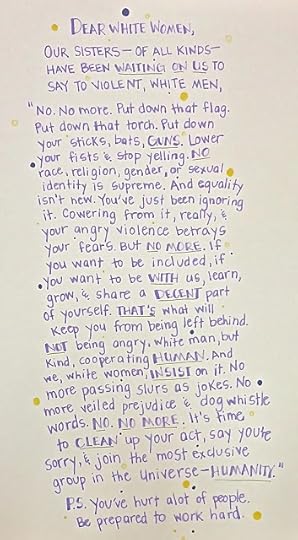 DEAR WHITE WOMEN,
OUR SISTERS-OF ALL KINDS-
HAVE BEEN WAITING ON US TO
SAY TO VIOLENT, WHITE MEN,
"No. No more. Put down that flag.
Put down that torch. Put down
your sticks, bats, GUNS. Lower
your fists & stop yelling. NO
race, religion, gender, or sexual
identity is supreme. And equality
isn't new. You've just been ignoring
it. Cowering from it, really, &
your angry violence betrays
your fears. But NO MORE. If
you want to be included, if
you want to be WITH us, learn,
grow, & share a DECENT part
of yourself. THAT'S what will
keep you from being left behind.
NOT being angry, white man, but
kind, cooperating HUMAN. And
we, white women, INSIST on it. No
more passing slurs as jokes. No
more veiled prejudice & dog whistle
words. NO. NO MORE. It's time
to CLEAN up your act, say you're
sorry, & join the most exclusive
group in the Universe-HUMANITY."
P.S. You've hurt alot of people.
Be prepared to work hard.